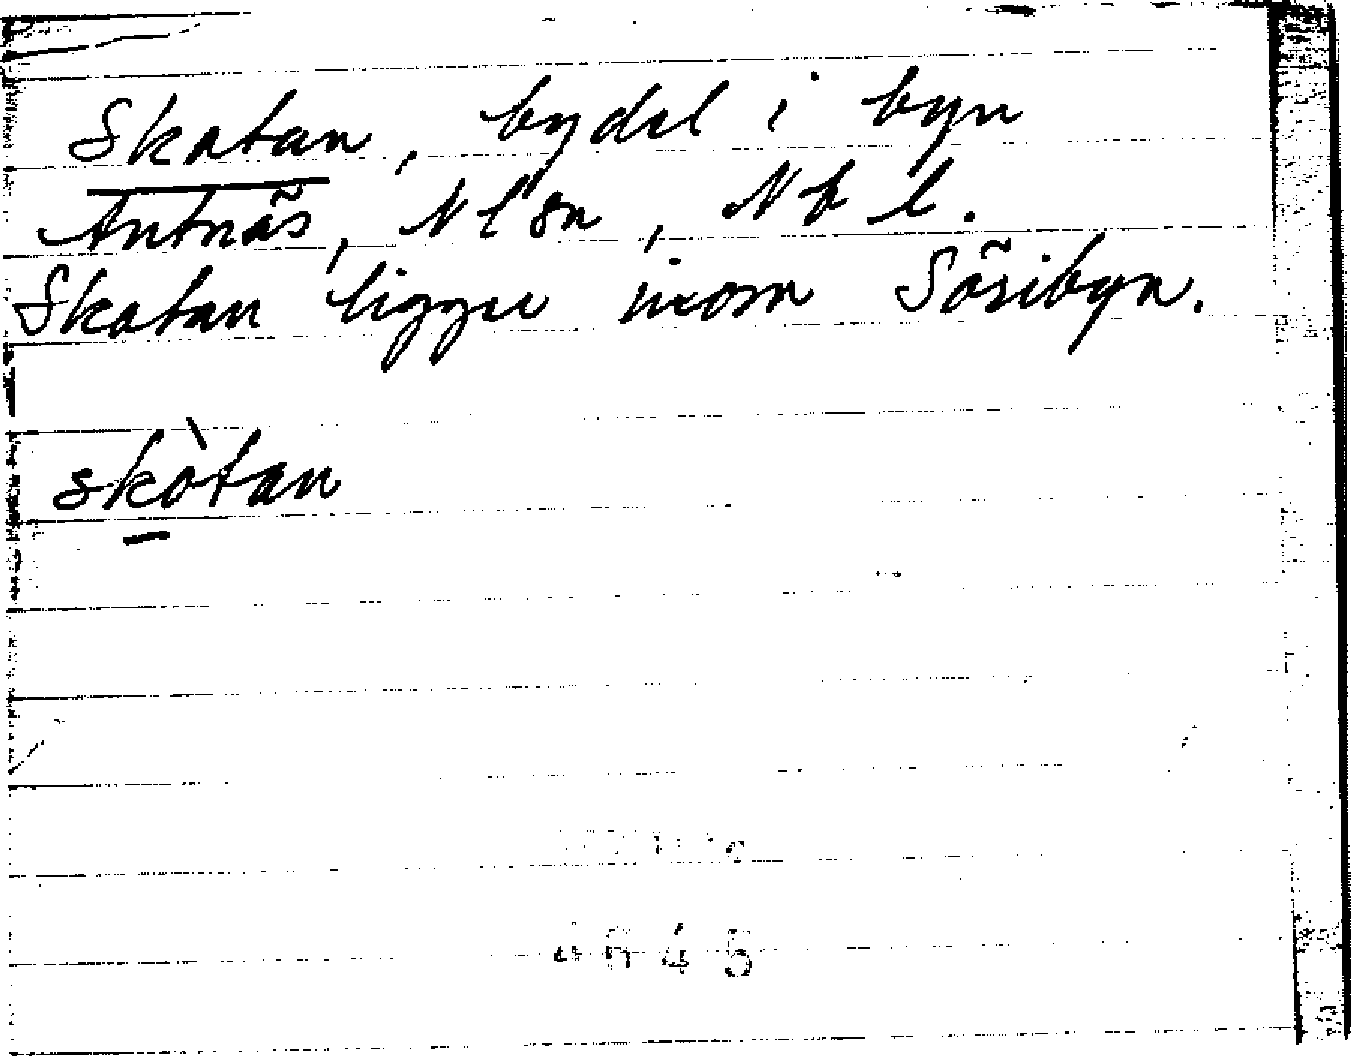 Skatan, bydel i byn
Antnäs, Nl sn, Nb l.
Skatan ligger inom Söribyn.
skòtan